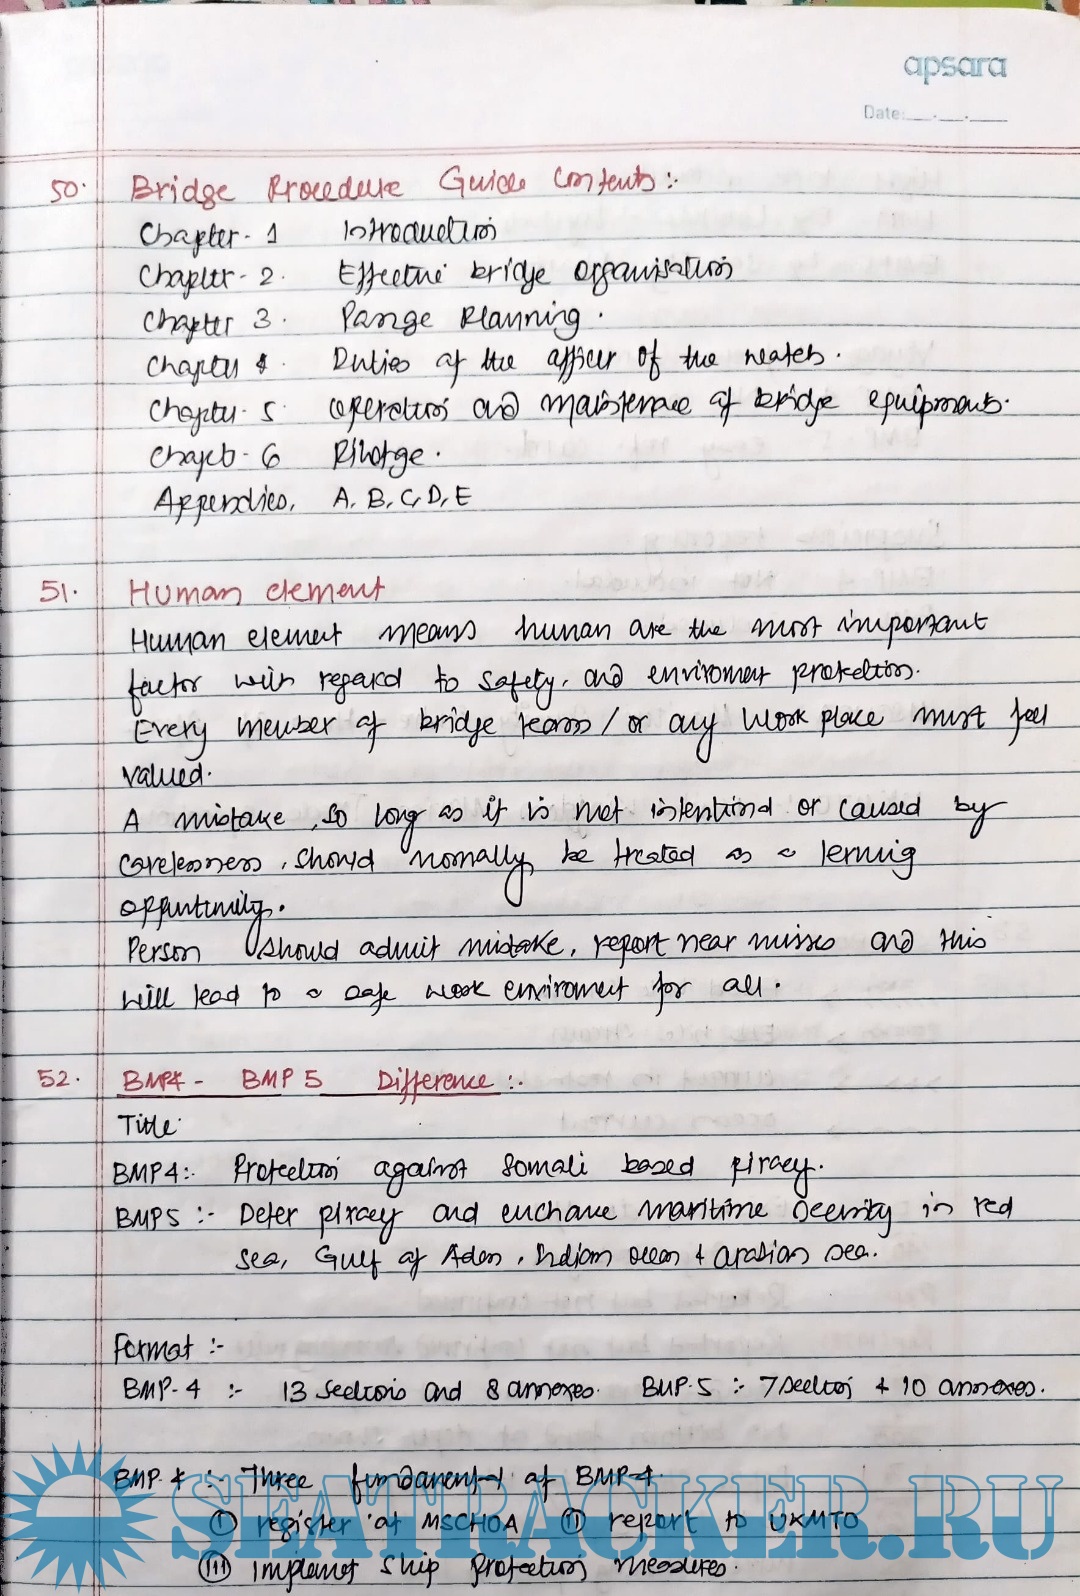 apsara
Date:__.__.__
50. Bridge Procedure Guide Contents :-
Chapter - 1 Introduction
Chapter - 2. Effective bridge organisation
Chapter 3. Passage Planning.
Chapter 4. Duties of the officer of the watch.
Chapter - 5 operation and maintenance of bridge equipment.
Chapter - 6 Pilotage.
Appendies. A, B, C, D, E
51. Human element
Human element means human are the most important
factor with regard to safety, and enviroment protection.
Every member of bridge team / or any work place must feel
valued.
A mistake, so long as it is not intentional or caused by
carelessness, should normally be treated as a lerning
oppurtunity.
Person should admit mistake, report near misses and this
will lead to a safe work enviroment for all.
52. BMP4 - BMP 5 Difference :-
Title
BMP4:- Protection against Somali based piracy.
BMP5 :- Deter piracy and enchane maritime security in red
sea, Gulf of Aden, Indian ocean + arabian sea.
Format :-
BMP-4 :- 13 sections and 8 annexes. BMP-5 :- 7 section + 10 annexes.
BMP-4 :- Three fundamental of BMP-4.
(i) register at MSCHOA (ii) report to UKMTO
(iii) Implement Ship protection measures.
SEATRACKER.RU